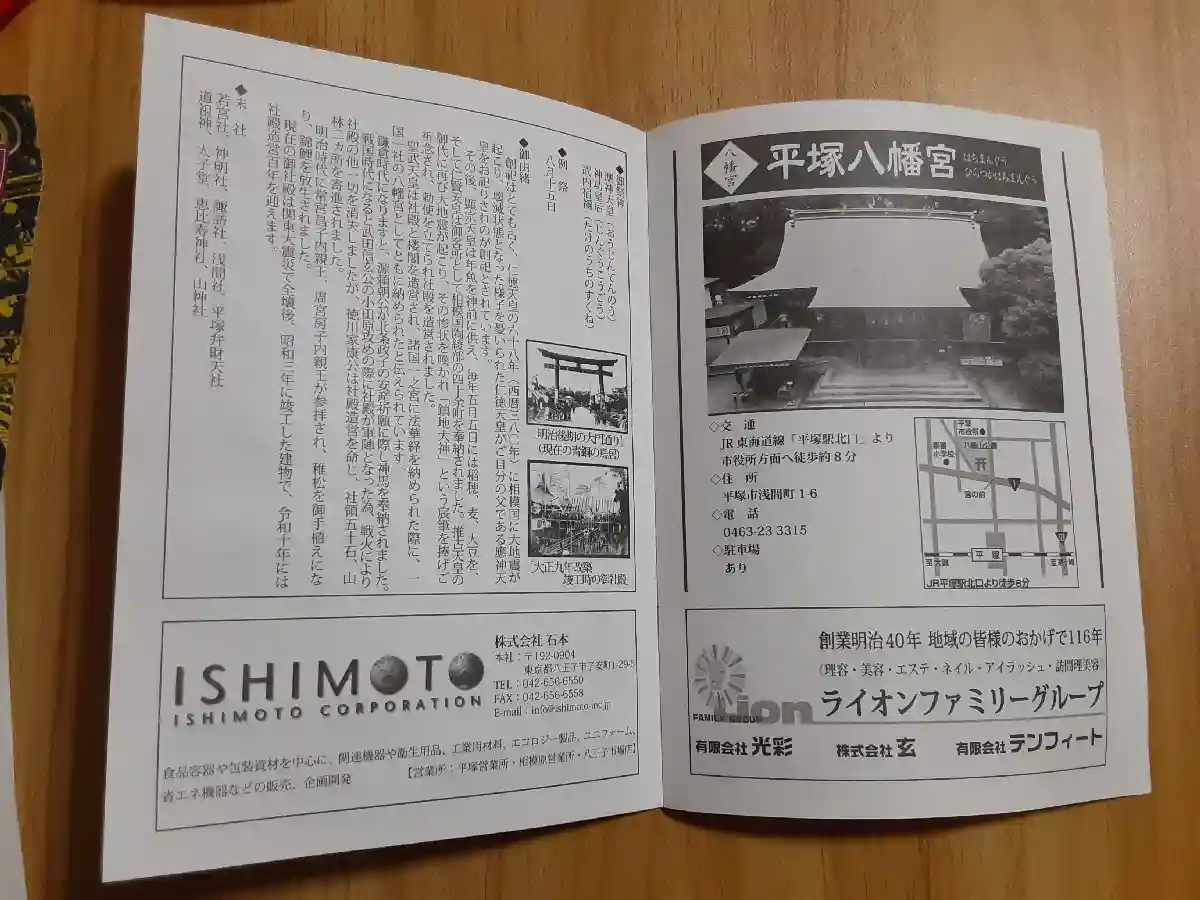 ◆御祭神
應神天皇(おうじんてんのう)
神功皇后(じんぐうこうごう)
武内宿禰(たけのうちのすくね)
◆例 祭
八月十五日
◆御由緒
創祀はとても古く、仁徳天皇の六十八年(西暦三八〇年)に相模国に大地震が
起こり、壊滅状態となった様子を憂いられた仁徳天皇がご自分の父である應神天
皇をお祀りされたのが創祀とされています。
その後、顕宗天皇は年魚を神前に供え、毎年五月五日には稲穂、麦、大豆を、
そして仁賢天皇は御客所として相模国高綾部の四十余町を奉納されました。推古天皇の
御代に再び大地震が起こり、その惨状を嘆かれ「鎮地大神」という宸筆を捧げご
祈念され、勅使を立てられ社殿を造営されました。
聖武天皇は社殿と楼閣を造営され、諸国一之宮に法華経を納められた際に、一
国一社の八幡宮としてともに納められたと伝えられています。
鎌倉時代になりますと、源頼朝公が北条政子の安産祈願に際し神馬を奉納されました。
戦国時代になると武田信玄公の小田原攻めの際に社殿が軍陣となった為、戦火により
社殿の他一切を消失しましたが、徳川家康公は社殿造営を命じ、社領五十石、山
林二ヵ所を寄進されました。
明治時代に常宮昌子内親王、周宮房子内親王が参拝され、稚松を御手植えにな
り、錦鯉を放生されました。
現在の御社殿は関東大震災で全壊後、昭和三年に竣工した建物で、令和十年には
社殿造営百年を迎えます。
◆末 社
若宮社、神明社、諏訪社、浅間社、平塚弁財天社
道祖神、太子堂、恵比寿神社、山神社
明治後期の大門通り
(現在の青銅の鳥居)
大正九年改築
竣工時の御社殿
ISHIMOTO
ISHIMOTO CORPORATION
株式会社 石本
本社:〒192-0904
東京都八王子市子安町1-29-5
TEL:042-656-6550
FAX:042-656-6558
E-mail:info@ishimoto-inc.jp
食品容器や包装資材を中心に、関連機器や衛生用品、工業用材料、エコロジー製品、ユニフォーム、
省エネ機器などの販売、企画開発
【営業所:平塚営業所・相模原営業所・八王子市場店】
八幡宮
平塚八幡宮
はちまんぐう
ひらつかはちまんぐう
◇交 通
JR東海道線「平塚駅北口」より
市役所方面へ徒歩約8分
◇住 所
平塚市浅間町1-6
◇電 話
0463-23 3315
◇駐車場
あり
平塚
市役所
八幡山公園
崇善
小学校
宮の前
1
平 塚
至大磯
至茅ヶ崎
JR平塚駅北口より徒歩8分
創業明治40年 地域の皆様のおかげで116年
《理容・美容・エステ・ネイル・アイラッシュ・訪問理美容》
Lion
FAMILY GROUP
ライオンファミリーグループ
有限会社 光彩
株式会社 玄
有限会社 テンフィート